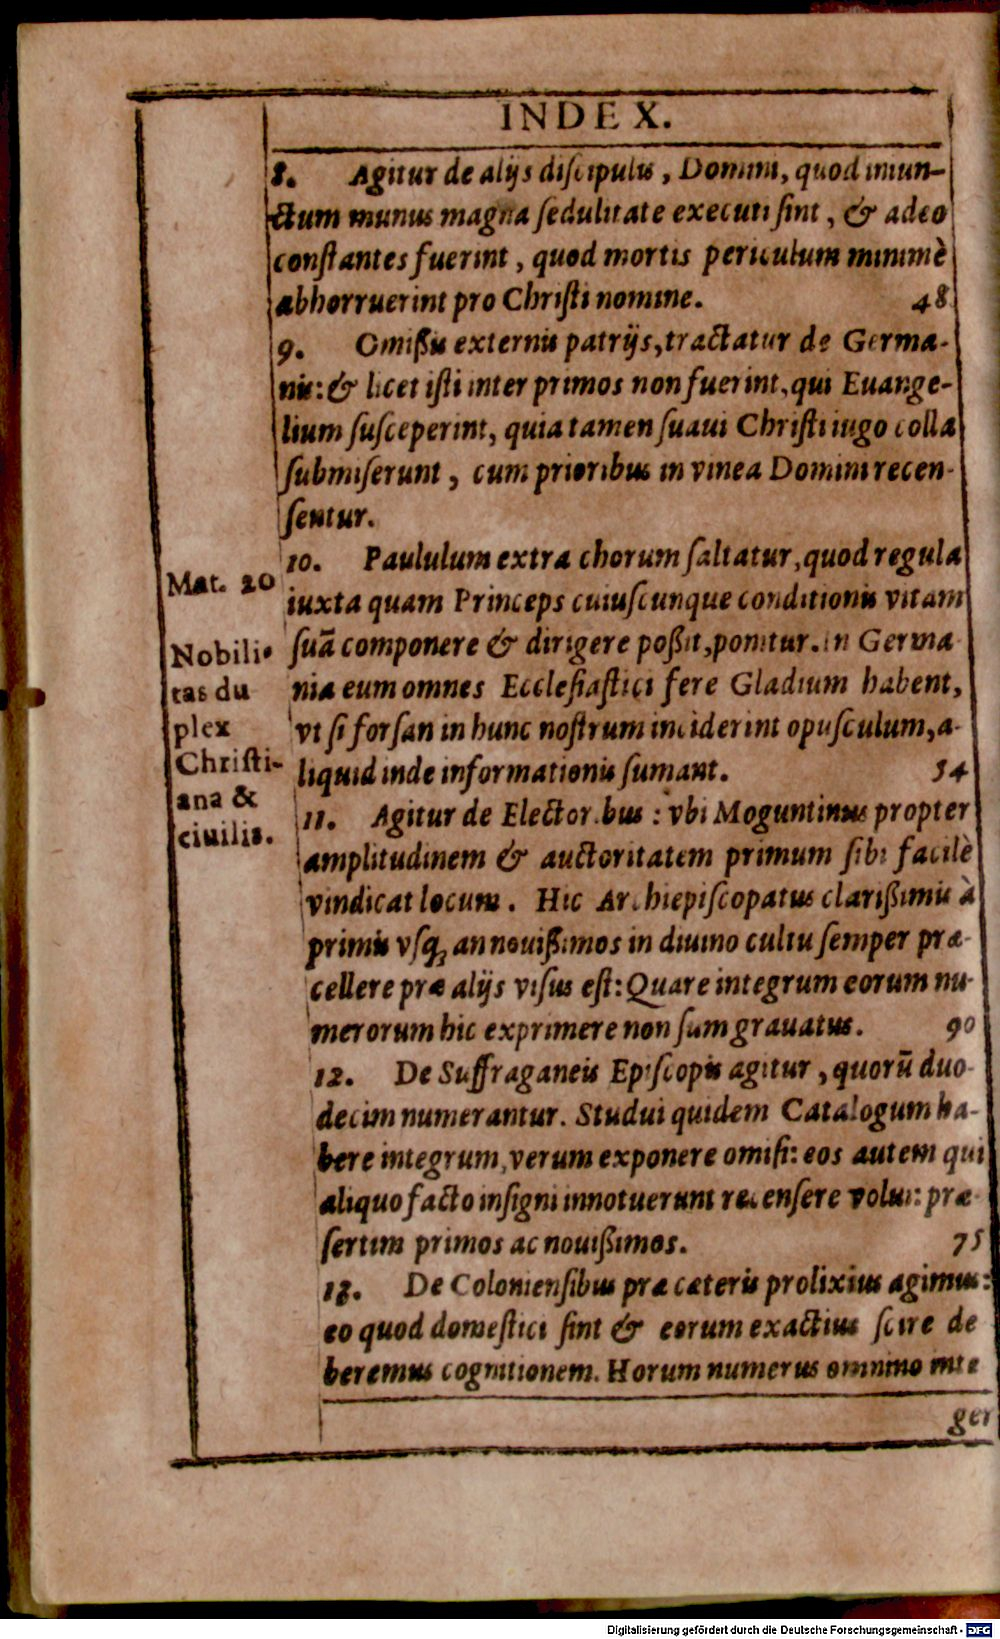 INDEX.
8. Agitur de alijs discipulis, Domini, quod iniun-
ctum munus magna sedulitate executi sint, & adeo
constantes fuerint, quod mortis periculum minimè
abhorruerint pro Christi nomine. 48
9. Omißis externis patrijs, tractatur de Germa-
nis: & licet isti inter primos non fuerint, qui Euange-
lium susceperint, quia tamen suaui Christi iugo colla
submiserunt, cum prioribus in vinea Domini recen-
sentur.
Mat. 20
10. Paululum extra chorum saltatur, quod regula
iuxta quam Princeps cuiuscunque conditionis vitam
suã componere & dirigere poßit, ponitur. In Germa
nia eum omnes Ecclesiastici fere Gladium habent,
vt si forsan in hunc nostrum inciderint opusculum, a-
liquid inde informationis sumant. 54
Nobili-
tas du
plex
Christi-
ana &
ciuilis.
11. Agitur de Electoribus: vbi Moguntinus propter
amplitudinem & auctoritatem primum sibi facilè
vindicat locum. Hic Archiepiscopatus clarißimis à
primis vsq; an nouißimos in diuino cultu semper præ-
cellere præ alijs visus est: Quare integrum eorum nu-
merorum hic exprimere non sum grauatus. 90
12. De Suffraganeis Episcopis agitur, quorũ duo-
decim numerantur. Studui quidem Catalogum ha-
bere integrum, verum exponere omisi: eos autem qui
aliquo facto insigni innotuerunt recensere volui: præ-
sertim primos ac nouißimos. 75
13. De Coloniensibus præ cæteris prolixius agimus:
eo quod domestici sint & eorum exactius scire de
beremus cognitionem. Horum numerus omnino inte
ger
Digitalisierung gefördert durch die Deutsche Forschungsgemeinschaft - DFG